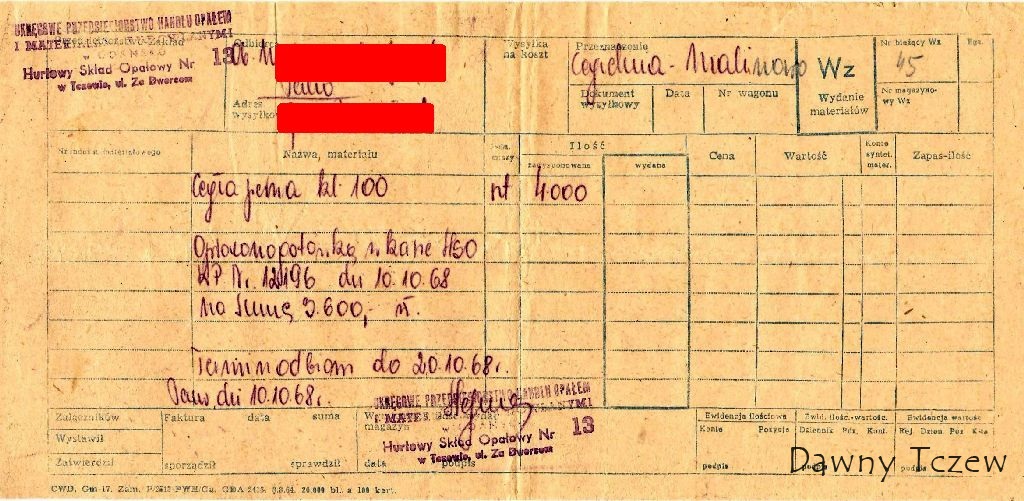 OKRĘGOWE PRZEDSIĘBIORSTWO HANDLU OPAŁEM
I MATERIAŁAMI BUDOWLANYMI
w GDAŃSKU
Hurtowy Skład Opałowy Nr 13
w Tczewie, ul. Za Dworcem
Odbiorca
Tczew
Adres
wysyłkowy
Wysyłka
na koszt
Przeznaczenie
Cegielnia - Malinowo
Dokument
wysyłkowy
Data
Nr wagonu
Wz
Wydanie
materiałów
Nr bieżący Wz
45
Nr magazyno-
wy Wz
Egz.
Nr indeksu materiałowego
Nazwa, materiału
Jedn.
miary
Ilość
zadysponowana
wydana
Cena
Wartość
Konto
syntet.
mater.
Zapas-ilość
Cegła pełna kl. 100 szt 4.000
Opłacono gotówką w kasie HSO
KP Nr. 12196 dn 10.10.68
na sumę 3.600,- zł.
Termin odbioru do 20.10.68r.
Tczew, dn 10.10.68r.
OKRĘGOWE PRZEDSIĘBIORSTWO HANDLU OPAŁEM
I MATERIAŁAMI BUDOWLANYMI
w GDAŃSKU
Hurtowy Skład Opałowy Nr 13
w Tczewie, ul. Za Dworcem
Załączników
Wystawił
Zatwierdził
Faktura data suma
sporządził sprawdził
magazyn
data podpis
Ewidencja ilościowa
Konto Pozycja
podpis
Ewid. ilość.-wartość.
Dziennik Poz. Kont.
podpis
Ewidencja wartość
Rej. Dzien. Poz.
podpis
Dawny Tczew